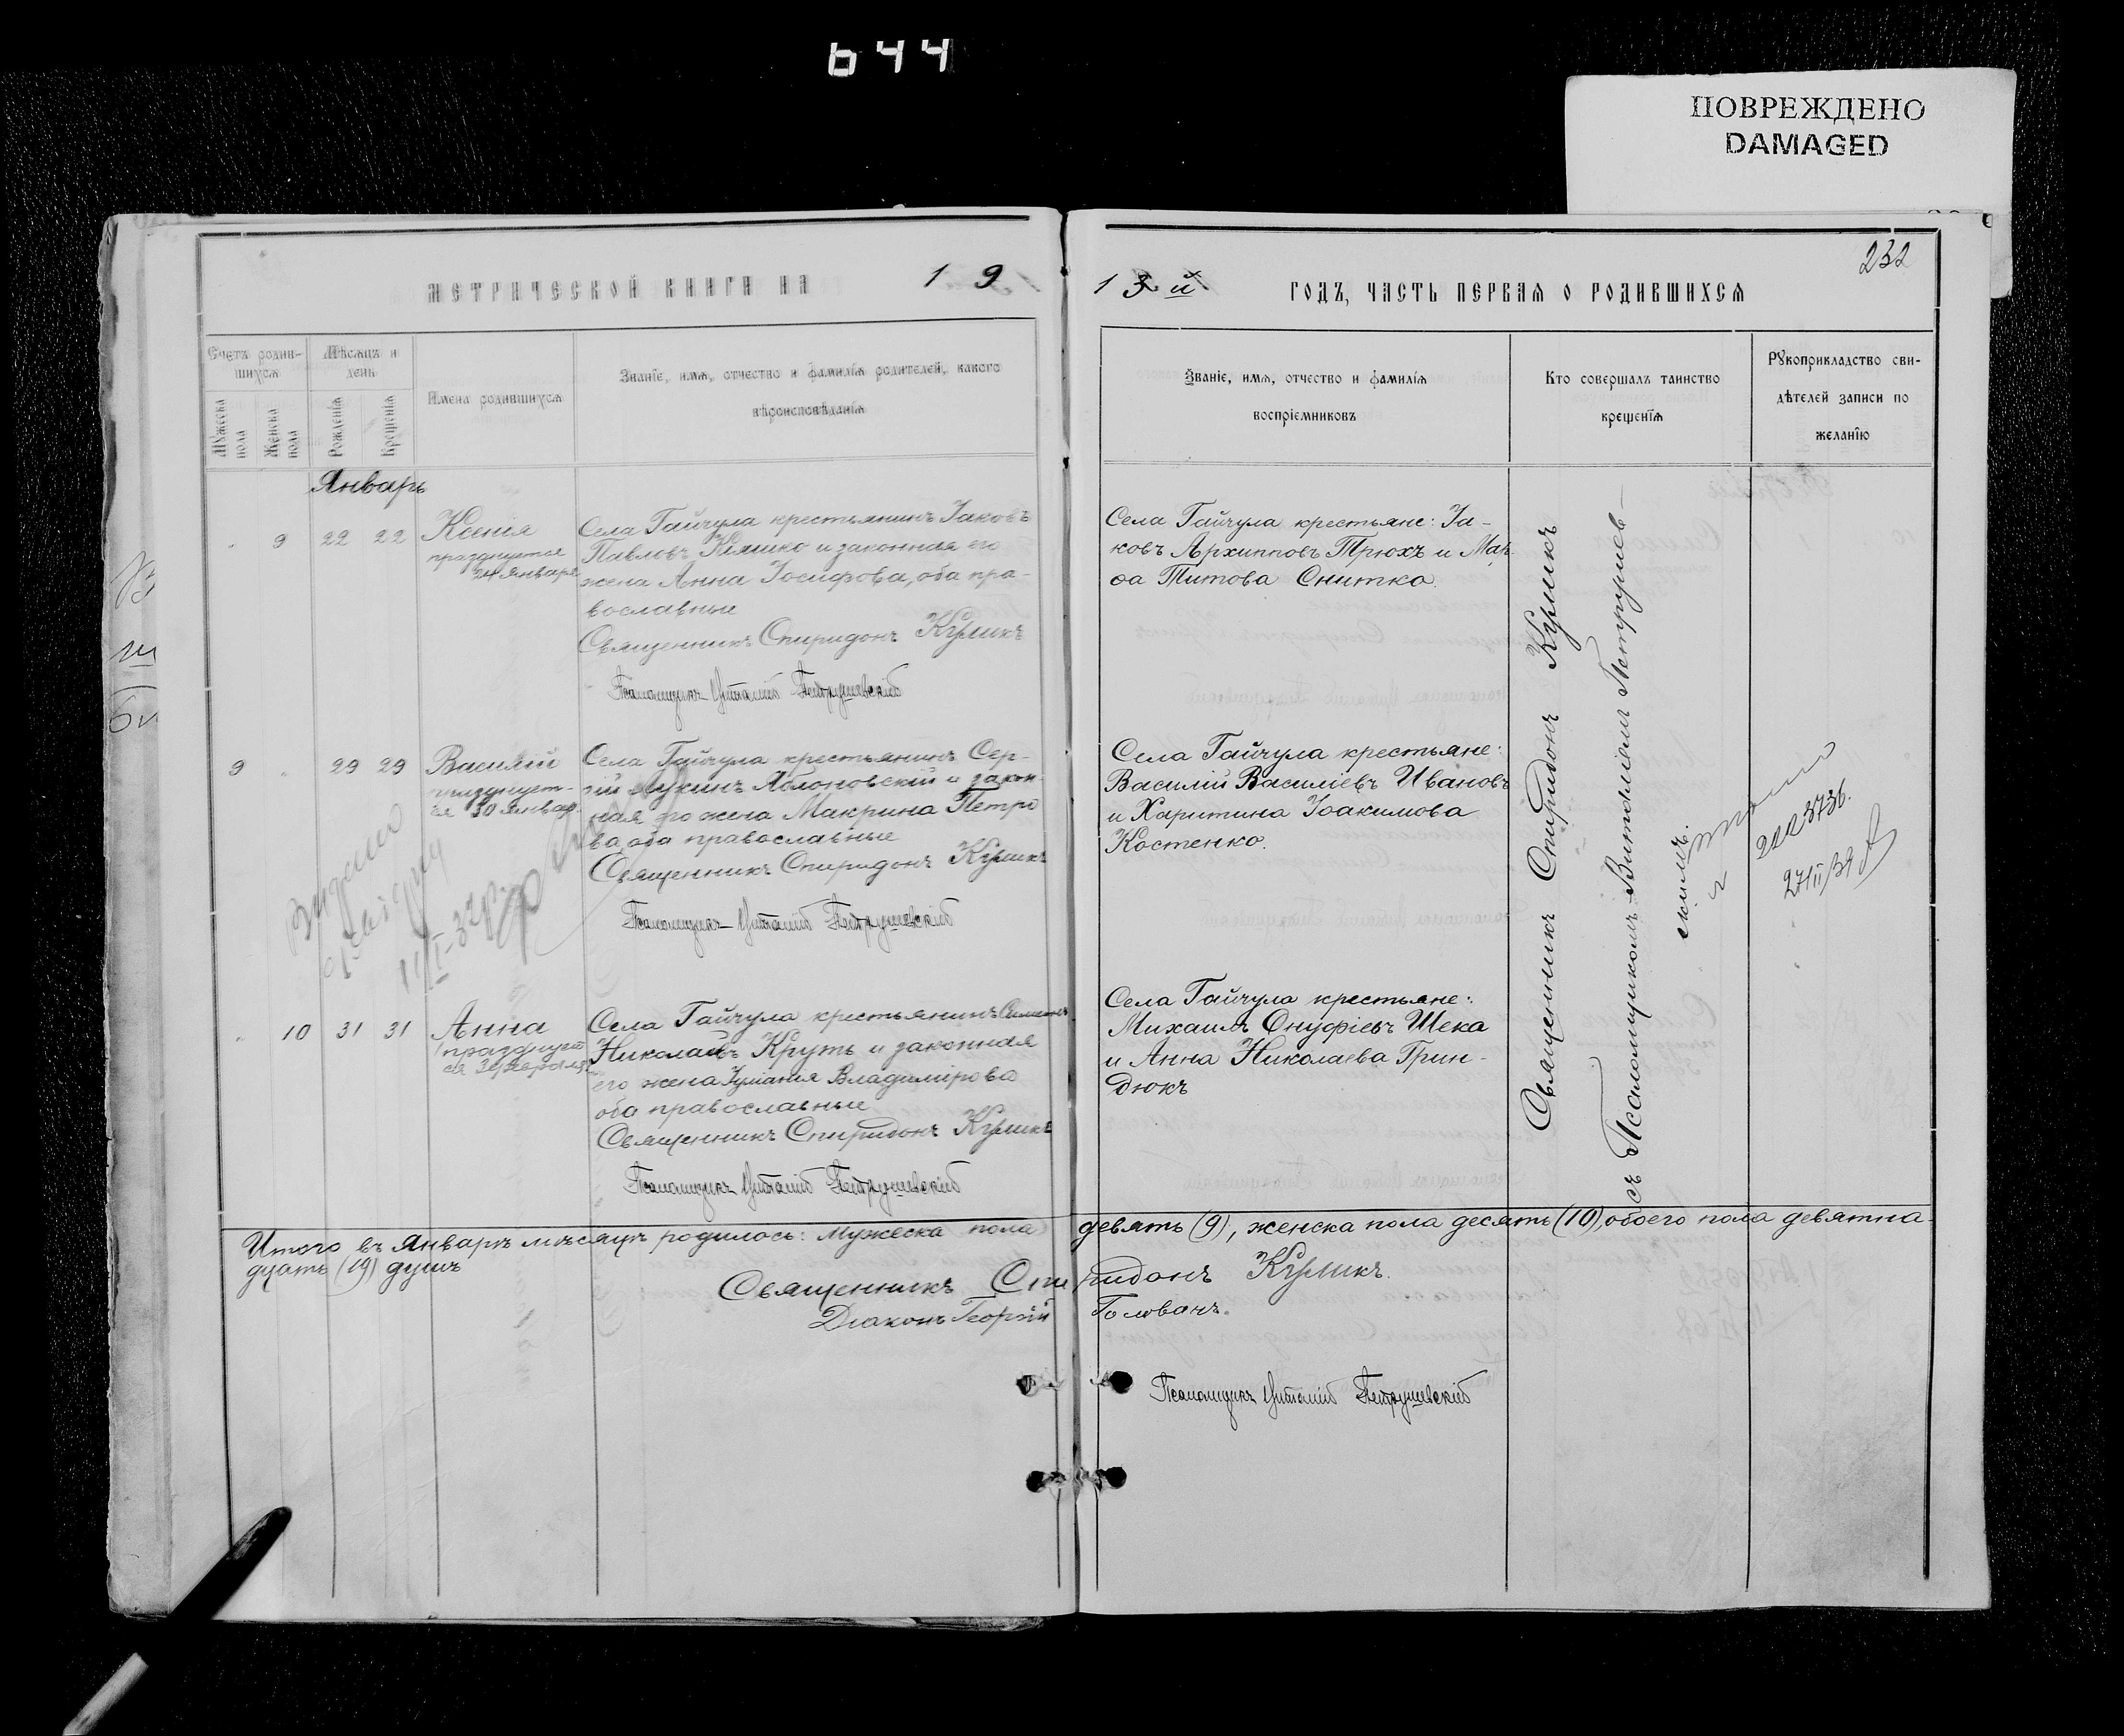 644
ПОВРЕЖДЕНО
DAMAGED
232
МЕТРИЧЕСКОЙ КНИГИ НА 19
13й ГОДЪ, ЧАСТЬ ПЕРВАЯ О РОДИВШИХСЯ
Счетъ родив-
шихся
Мужеска пола
Женска пола
Мѣсяцъ и
день
Рожденія
Крещенія
Имена родившихся
Званіе, имя, отчество и фамилія родителей, какого
вѣроисповѣданія
Званіе, имя, отчество и фамилія
воспріемниковъ
Кто совершалъ таинство
крещенія
Рукоприкладство сви-
дѣтелей записи по
желанію
Январь
9 22 22
Ксенія
празднуется
24 Января
Села Гайчула крестьянинъ Іаковъ
Павловъ и законная его
жена Анна Іосифова, оба пра-
вославные
Священникъ Спиридонъ Куликъ
Псаломщикъ Виталій Петрушевскій
Села Гайчула крестьяне: Іа-
ковъ Архипповъ Трюхъ и Мар-
ѳа Титова Снитко.
9 29 29
Василій
празднует-
ся 30 Январ.
Села Гайчула крестьянинъ Сер-
гій Лукинъ Яблоновскій и закон-
ная его жена Макрина Петро
ва, оба православные
Священникъ Спиридонъ Куликъ
Псаломщикъ Виталій Петрушевскій
Села Гайчула крестьяне:
Василій Василіевъ Ивановъ
и Харитина Іоакимова
Костенко.
10 31 31
Анна
празднует
ся 3 февраля
Села Гайчула крестьянинъ
Николаевъ Круть и законная
его жена Іуліанія Владимірова
оба православные
Священникъ Спиридонъ Куликъ
Псаломщикъ Виталій Петрушевскій
Села Гайчула крестьяне:
Михаилъ Онуфріевъ Шека
и Анна Николаева Грин-
дюкъ
Священникъ Спиридонъ Куликъ
съ Псаломщикомъ Виталіемъ Петрушев-
скимъ.
Видано
3736.
27/II/39
Итого въ Январѣ мѣсяцѣ родилось: Мужеска пола девять (9), женска пола десять (10), обоего пола девятна-
дцать (19) душъ
Священникъ Спиридонъ Куликъ.
Діаконъ Георгій Головань.
Псаломщикъ Виталій Петрушевскій